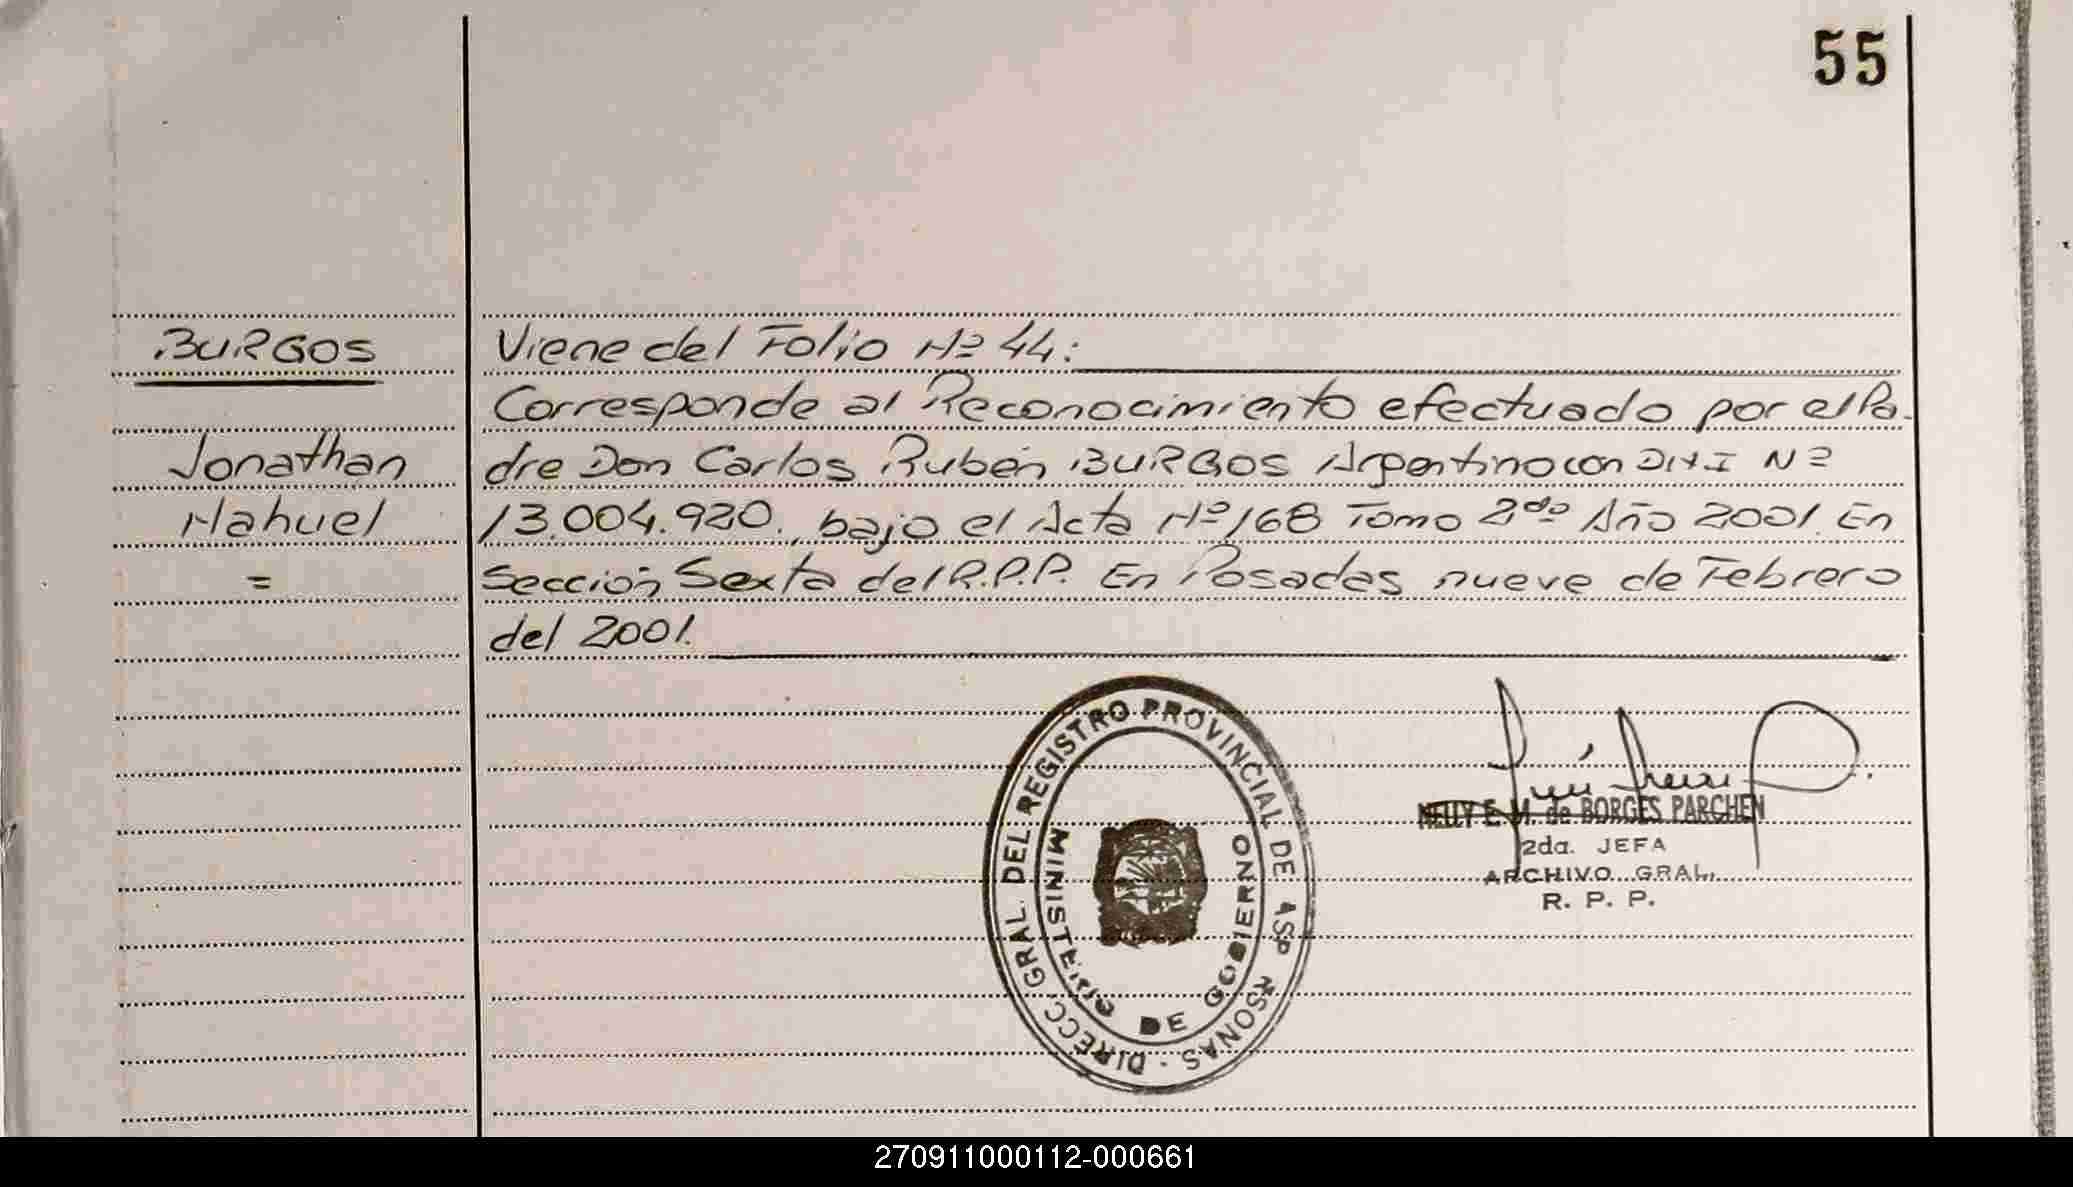 55
BURGOS
Jonathan
Nahuel
=
Viene del Folio Nº 44:
Corresponde al Reconocimiento efectuado por el Pa-
dre Don Carlos Rubén BURGOS Argentino con DNI Nº
13.004.920, bajo el Acta Nº 168 Tomo 2do Año 2001. En
Sección Sexta del R.P.P. En Posadas nueve de Febrero
del 2001.
DIRECC GRAL. DEL REGISTRO PROVINCIAL DE
MINISTERIO DE GOBIERNO
NELLY E. M. de BORGES PARCHEN
2da. JEFA
ARCHIVO GRAL.
R. P. P.
270911000112-000661